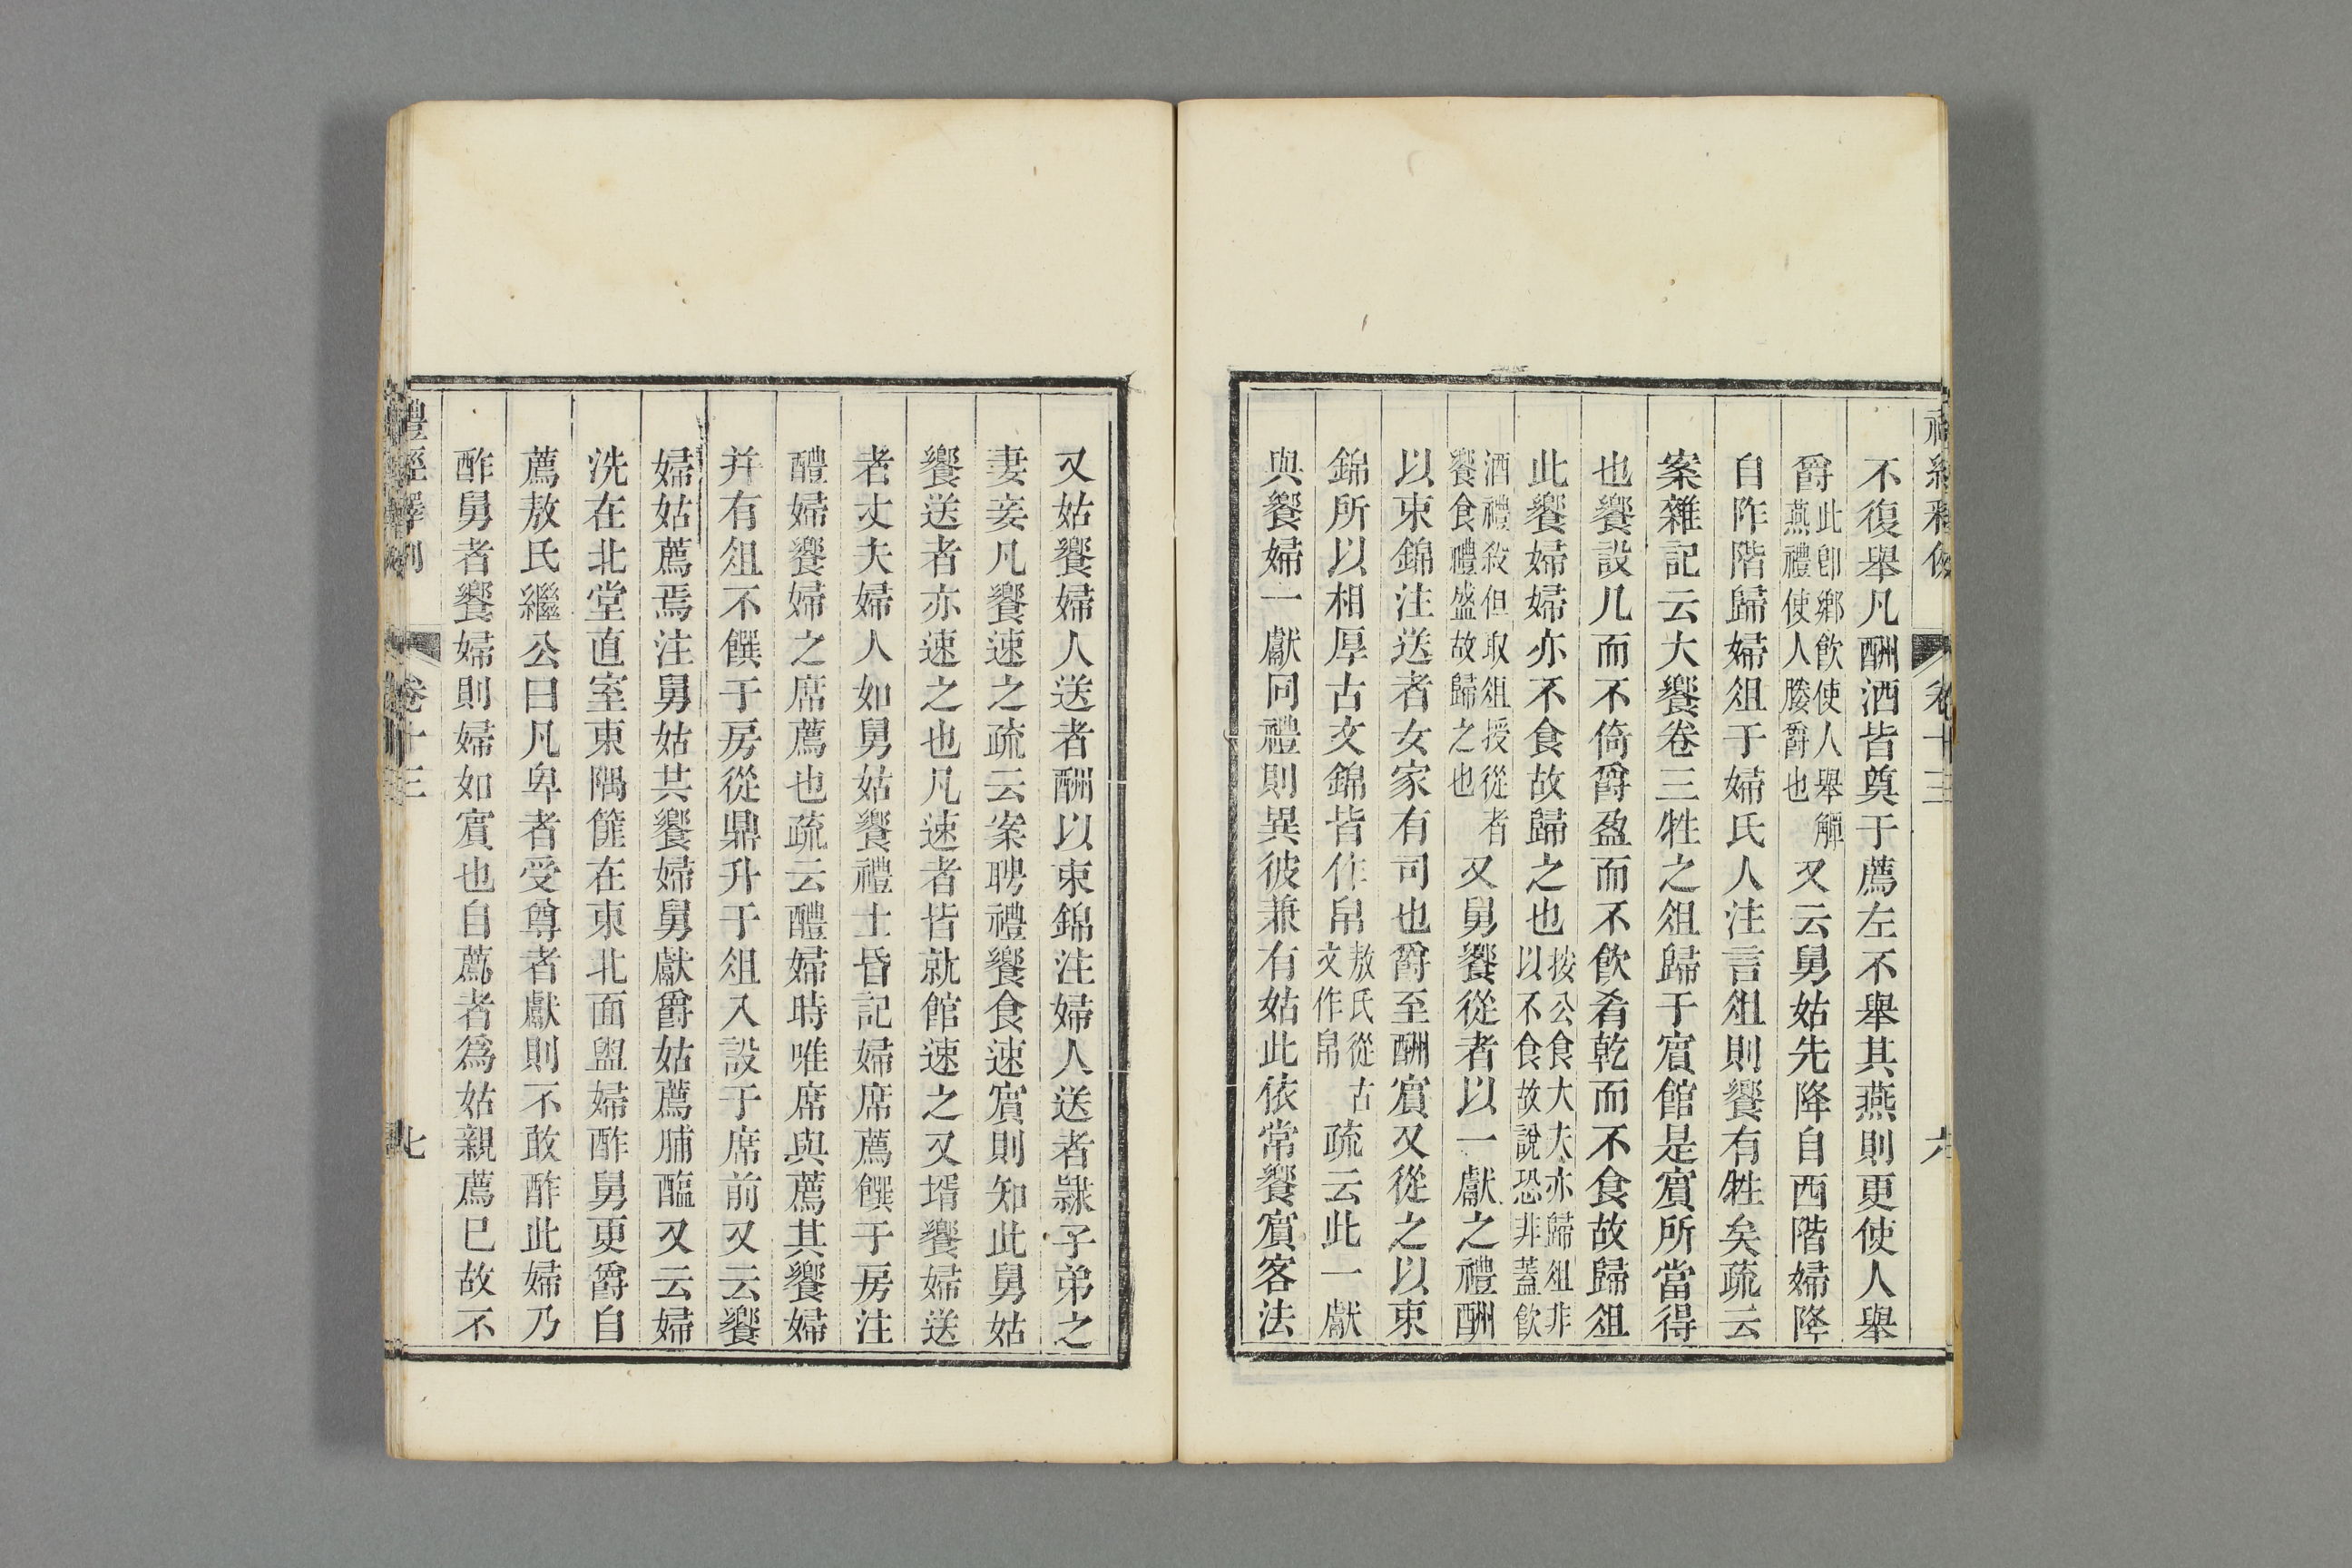 不復舉凡酬酒皆奠于薦左不舉其燕則更使人舉
爵此卽鄉飲使人舉觶燕禮使人媵爵也又云舅姑先降自西階婦降
自阼階歸婦俎于婦氏人注言俎則饗有牲矣疏云
案雜記云大饗卷三牲之俎歸于賓館是賓所當得
也饗設几而不倚爵盈而不飲肴乾而不食故歸俎
此饗婦婦亦不食故歸之也按公食大夫亦歸俎非以不食故說恐非蓋飲
酒禮殺但取俎授從者饗食禮盛故歸之也又舅饗從者以一獻之禮酬
以束錦注送者女家有司也爵至酬賓又從之以束
錦所以相厚古文錦皆作帛敖氏從古文作帛疏云此一獻
與饗婦一獻同禮則異彼兼有姑此依常饗賓客法
卷十三
六
又姑饗婦人送者酬以束錦注婦人送者隸子弟之
妻妾凡饗速之疏云案聘禮饗食速賓則知此舅姑
饗送者亦速之也凡速者皆就館速之又壻饗婦送
者丈夫婦人如舅姑饗禮士昏記婦席薦饌于房注
醴婦饗婦之席薦也疏云醴婦時唯席與薦其饗婦
并有俎不饌于房從鼎升于俎入設于席前又云饗
婦姑薦焉注舅姑共饗婦舅獻爵姑薦脯醢又云婦
洗在北堂直室東隅篚在東北面盥婦酢舅更爵自
薦敖氏繼公曰凡卑者受尊者獻則不敢酢此婦乃
酢舅者饗婦則婦如賓也自薦者為姑親薦已故不
禮經釋例
卷十三
七